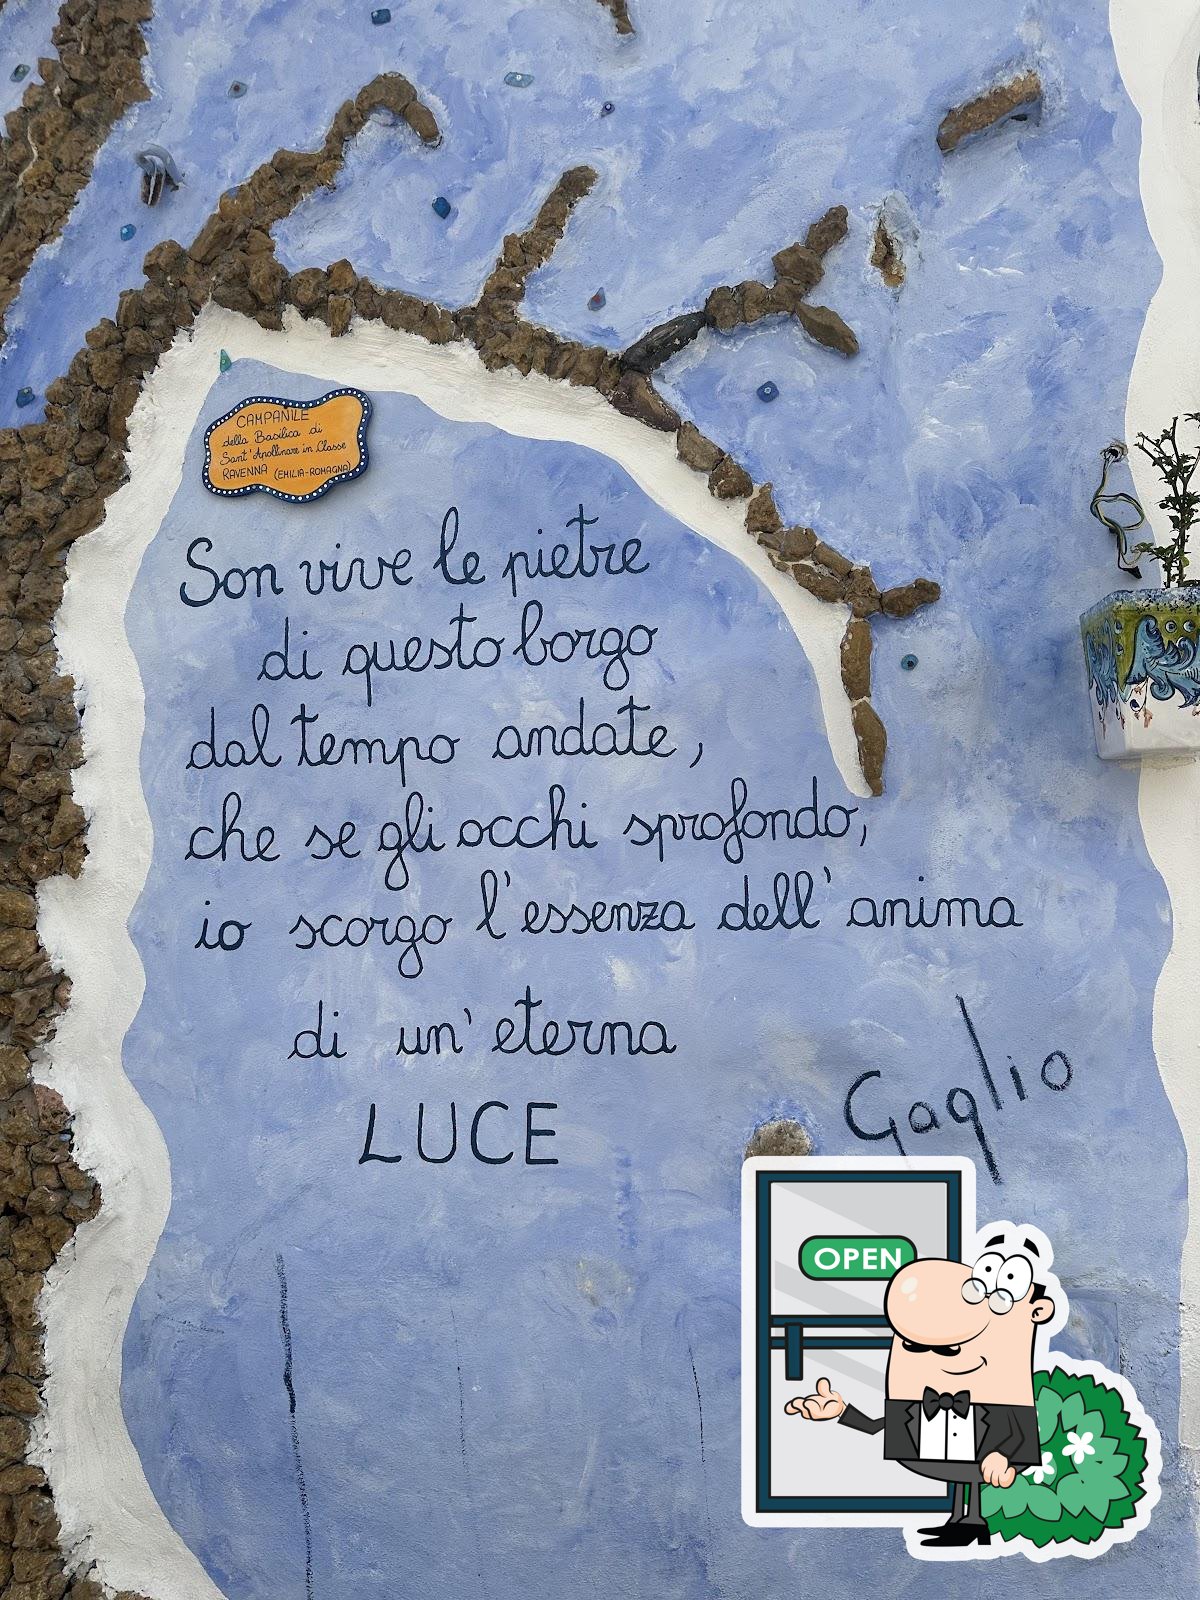 CAMPANILE
della Basilica di
Sant'Apollinare in Classe
RAVENNA (EMILIA-ROMAGNA)
Son vive le pietre
di questo borgo
dal tempo andate,
che se gli occhi sprofondo,
io scorgo l'essenza dell'anima
di un'eterna
LUCE
Gaglio
OPEN